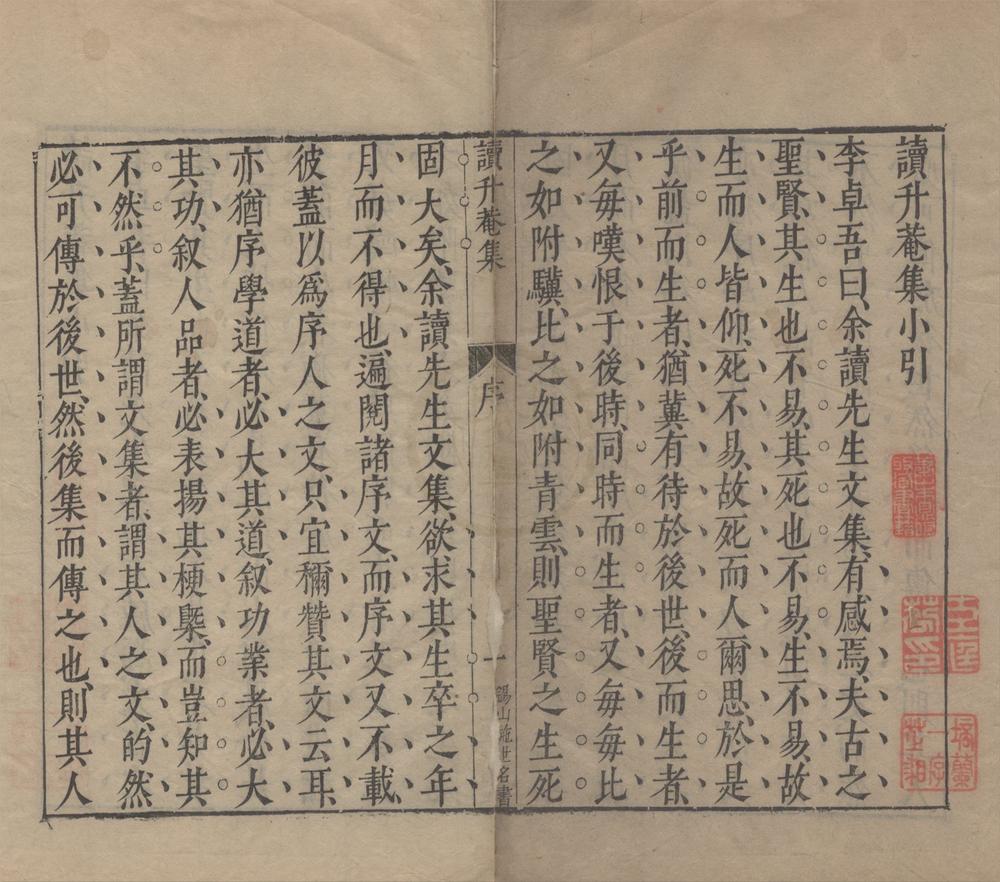 讀升菴集小引
李卓吾曰、余讀先生文集、有感焉、夫古之
聖賢、其生也不易、其死也不易、生不易、故
生而人皆仰、死不易、故死而人爾思、於是
乎前而生者、猶冀有待於後世、後而生者、
又每嘆恨于後時、同時而生者、又每每比
之如附驥、比之如附青雲、則聖賢之生死
讀升菴集
序
一
錫山施世名書
固大矣、余讀先生文集、欲求其生卒之年
月而不得也、遍閱諸序文、而序文又不載、
彼蓋以爲序人之文、只宜稱贊其文云耳、
亦猶序學道者、必大其道、叙功業者、必大
其功、叙人品者、必表揚其梗槩、而豈知其
不然乎、蓋所謂文集者、謂其人之文、的然
必可傳於後世、然後集而傳之也、則其人